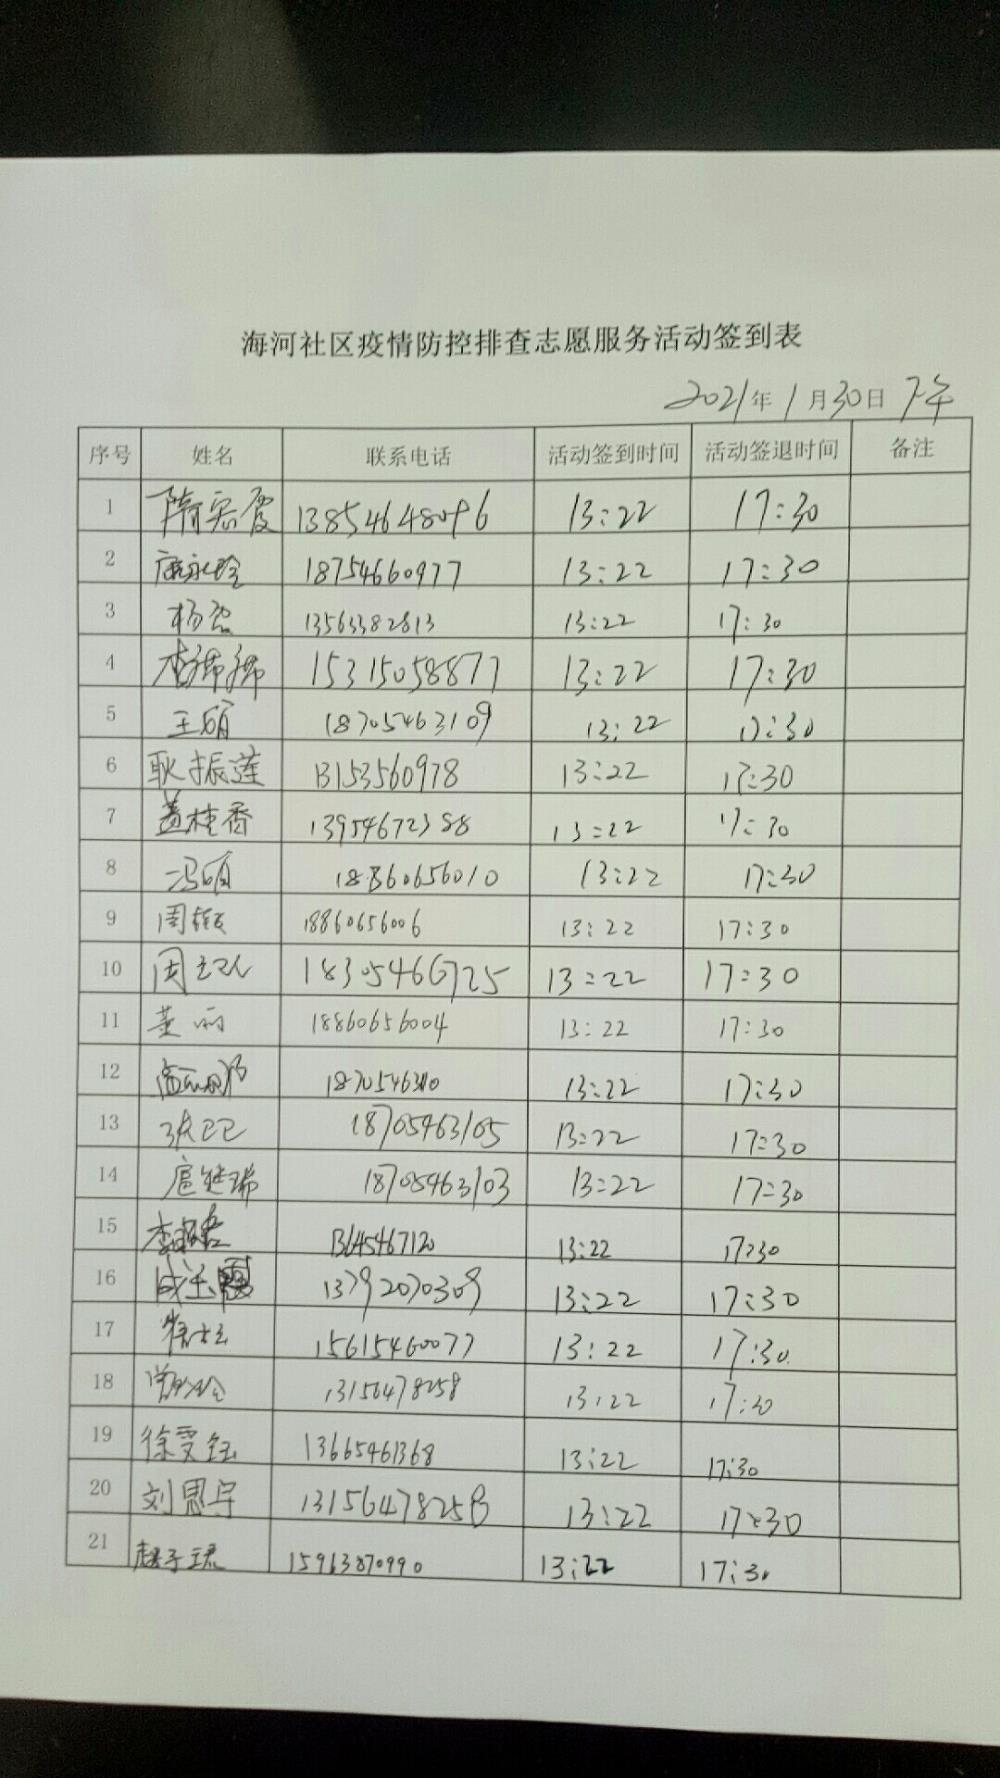 海河社区疫情防控排查志愿服务活动签到表
2021年1月30日 下午
序号 姓名 联系电话 活动签到时间 活动签退时间 备注
1 隋宏霞 13854648096 13:22 17:30
2 18754660977 13:22 17:30
3 杨磊 13563382813 13:22 17:30
4 李锦锦 15315058877 13:22 17:30
5 王硕 18705463109 13:22 17:30
6 耿振莲 13153560978 13:22 17:30
7 盖桂香 13954672388 13:22 17:30
8 冯硕 18860656010 13:22 17:30
9 周 18860656006 13:22 17:30
10 周 18305466725 13:22 17:30
11 董丽 18860656004 13:22 17:30
12 13:22 17:30
13 张巴巴 18705463105 13:22 17:30
14 扈继瑞 18705463103 13:22 17:30
15 李 13645467120 13:22 17:30
16 成玉 13792070309 13:22 17:30
17 15615460077 13:22 17:30
18 13156478258 13:22 17:30
19 徐雯钰 13665461368 13:22 17:30
20 刘思宇 13156478258 13:22 17:30
21 赵子珺 15963870990 13:22 17:30